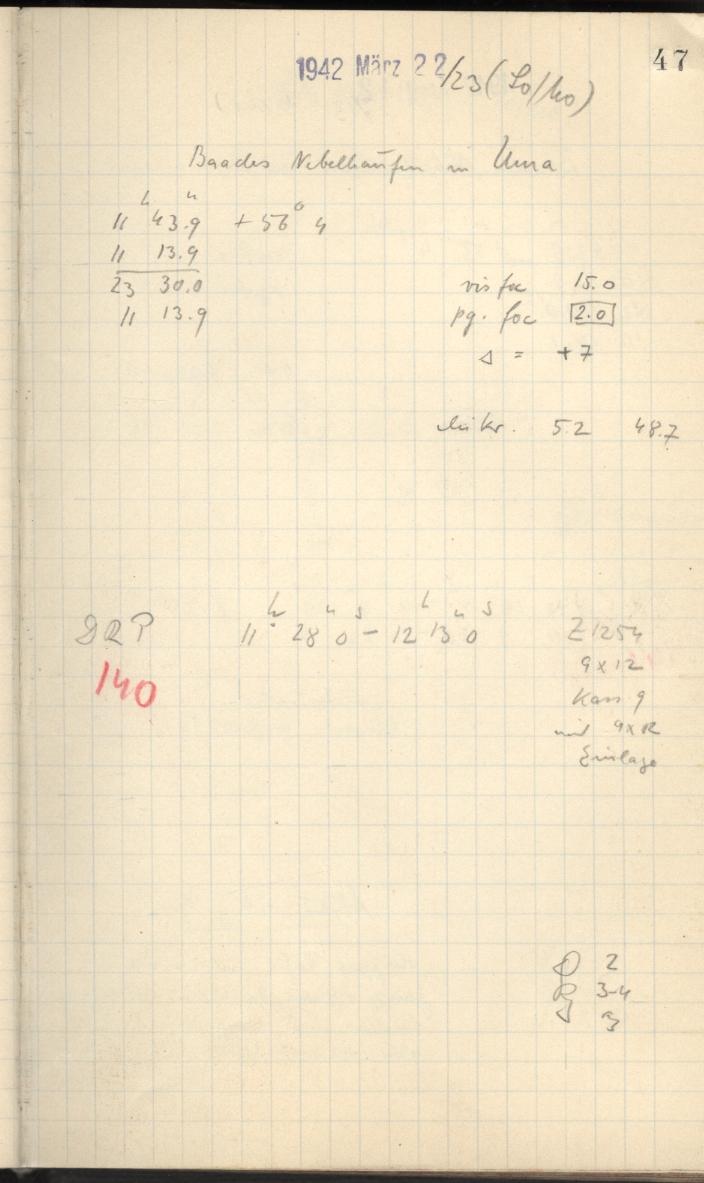 47
1942 März 22/23 (So/Mo)
Baades Nebelhaufen in Uma
11ʰ 43.9ᵐ + 56° 4
11 13.9
23 30.0
11 13.9
vis foc 15.0
pg. foc 2.0
Δ = +7
Mikr. 5.2 48.7
DRP 11ʰ 28ᵐ 0ˢ – 12ʰ 13ᵐ 0ˢ Z1254
140
9x12
Kass 9
mit 9x12
Einlage
2
3-4
3